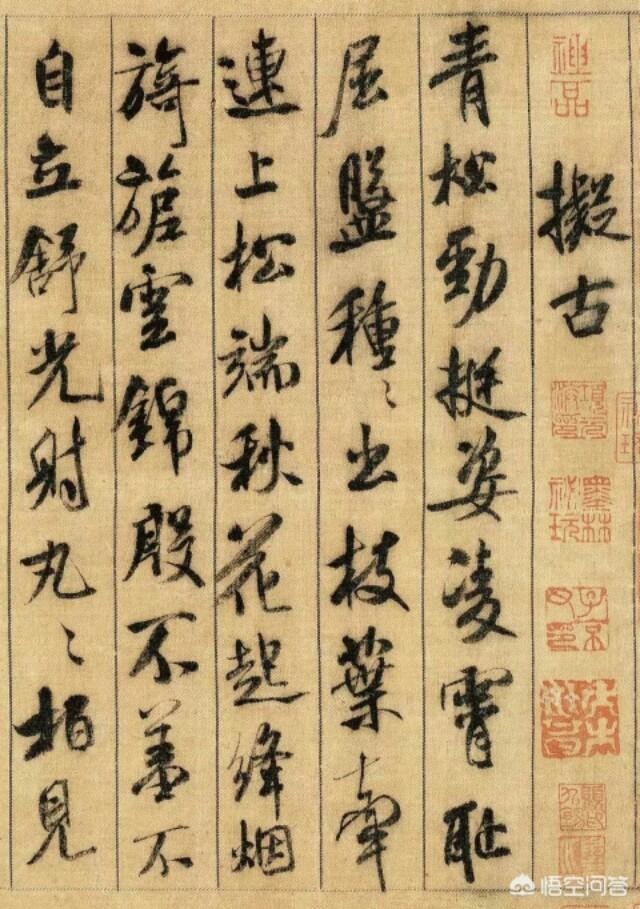 神品
擬古
青松勁挺姿凌霄耻
屈盤種〻出枝葉牽
連上松端秋花起絳烟
旖旎雲錦殷不羞不
自立舒光射丸〻柏見
墨林祕玩
悟空问答